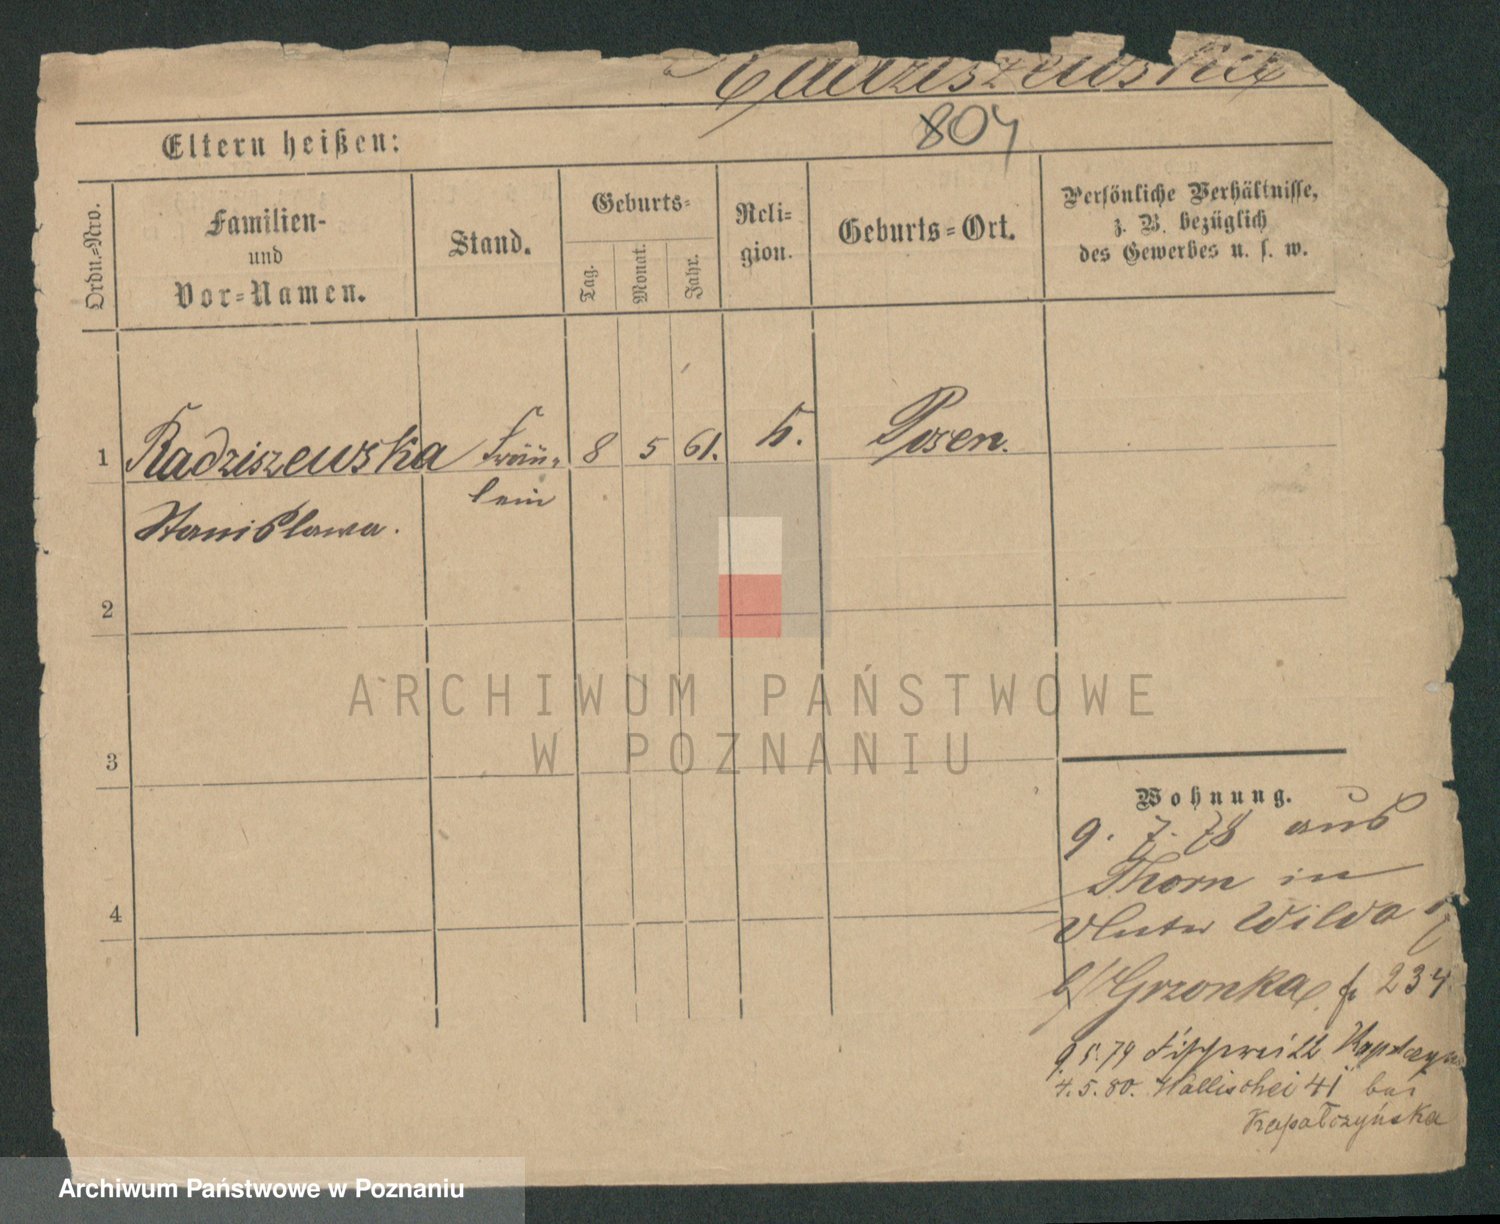 Radziszewska
804
Eltern heißen:
Ordn.-Nro.
Familien-
und
Vor-Namen.
Stand.
Geburts-
Tag.
Monat.
Jahr.
Reli-
gion.
Geburts-Ort.
Persönliche Verhältnisse,
z. B. bezüglich
des Gewerbes u. s. w.
1 Radziszewska Fräu- 8 5 61. k. Posen.
Stanislawa. lein
2
3
4
Wohnung.
9. 7. 78 aus
Thorn in
Unter Wilda
b/ Grzonka f. 234
9.5.79 Fischerei
4.5.80. Wallischei 41 bei
Kapałczyńska
ARCHIWUM PAŃSTWOWE
W POZNANIU
Archiwum Państwowe w Poznaniu